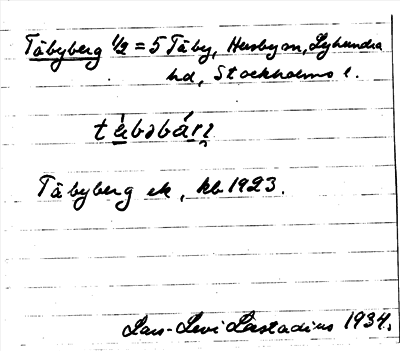 Täbyberg 1/2 = 5 Täby, Husby sn, Lyhundra
hd, Stockholms l.
tä̀bəbárɪ
Täbyberg ek, kb 1923.
Lars-Levi Læstadius 1934.